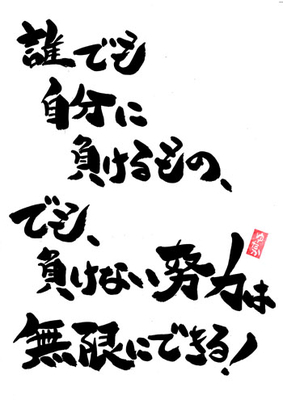 誰でも
自分に
負けるもの、
でも、
負けない努力は
無限にできる!
ゆたか